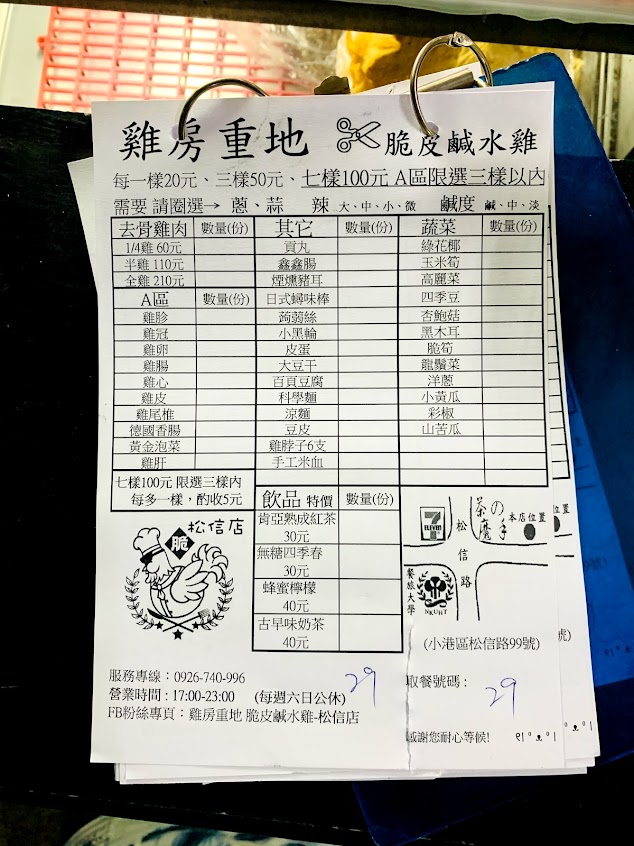 雞房重地 脆皮鹹水雞
每一樣20元、三樣50元、七樣100元 A區限選三樣以內
需要 請圈選→ 蔥、蒜 辣 大、中、小、微 鹹度 鹹、中、淡
去骨雞肉 數量(份) 其它 數量(份) 蔬菜 數量(份)
1/4雞 60元 貢丸 綠花椰
半雞 110元 鑫鑫腸 玉米筍
全雞 210元 煙燻豬耳 高麗菜
A區 數量(份) 日式蟳味棒 四季豆
雞胗 蒟蒻絲 杏鮑菇
雞冠 小黑輪 黑木耳
雞卵 皮蛋 脆筍
雞腸 大豆干 龍鬚菜
雞心 百頁豆腐 洋蔥
雞皮 科學麵 小黃瓜
雞尾椎 涼麵 彩椒
德國香腸 豆皮 山苦瓜
黃金泡菜 雞脖子6支
雞肝 手工米血
七樣100元 限選三樣內
每多一樣，酌收5元
飲品 特價 數量(份)
肯亞熟成紅茶
30元
無糖四季春
30元
蜂蜜檸檬
40元
古早味奶茶
40元
脆
松信店
7
ELEVEN
松信路
茶の魔手
本店位置
餐旅大學
NKUHT
(小港區松信路99號)
服務專線：0926-740-996
營業時間：17:00-23:00 (每週六日公休)
FB粉絲專頁：雞房重地 脆皮鹹水雞-松信店
29
取餐號碼：
29
感謝您耐心等候!
位置
號)